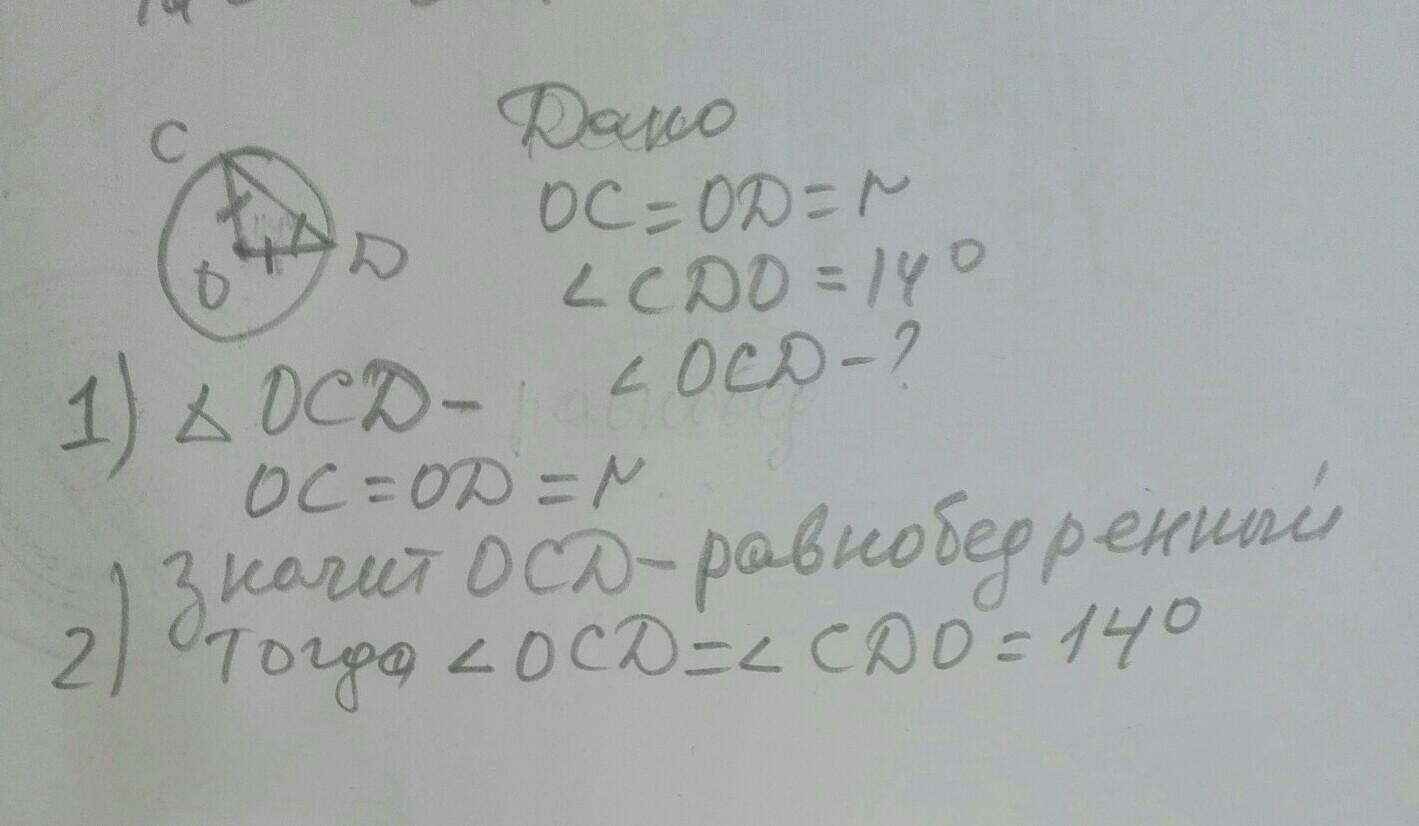 C
D
O
Дано
OC=OD=r
∠CDO=14°
∠OCD-?
1) △OCD-
OC=OD=r
значит OCD-равнобедренный
2) Тогда ∠OCD=∠CDO=14°